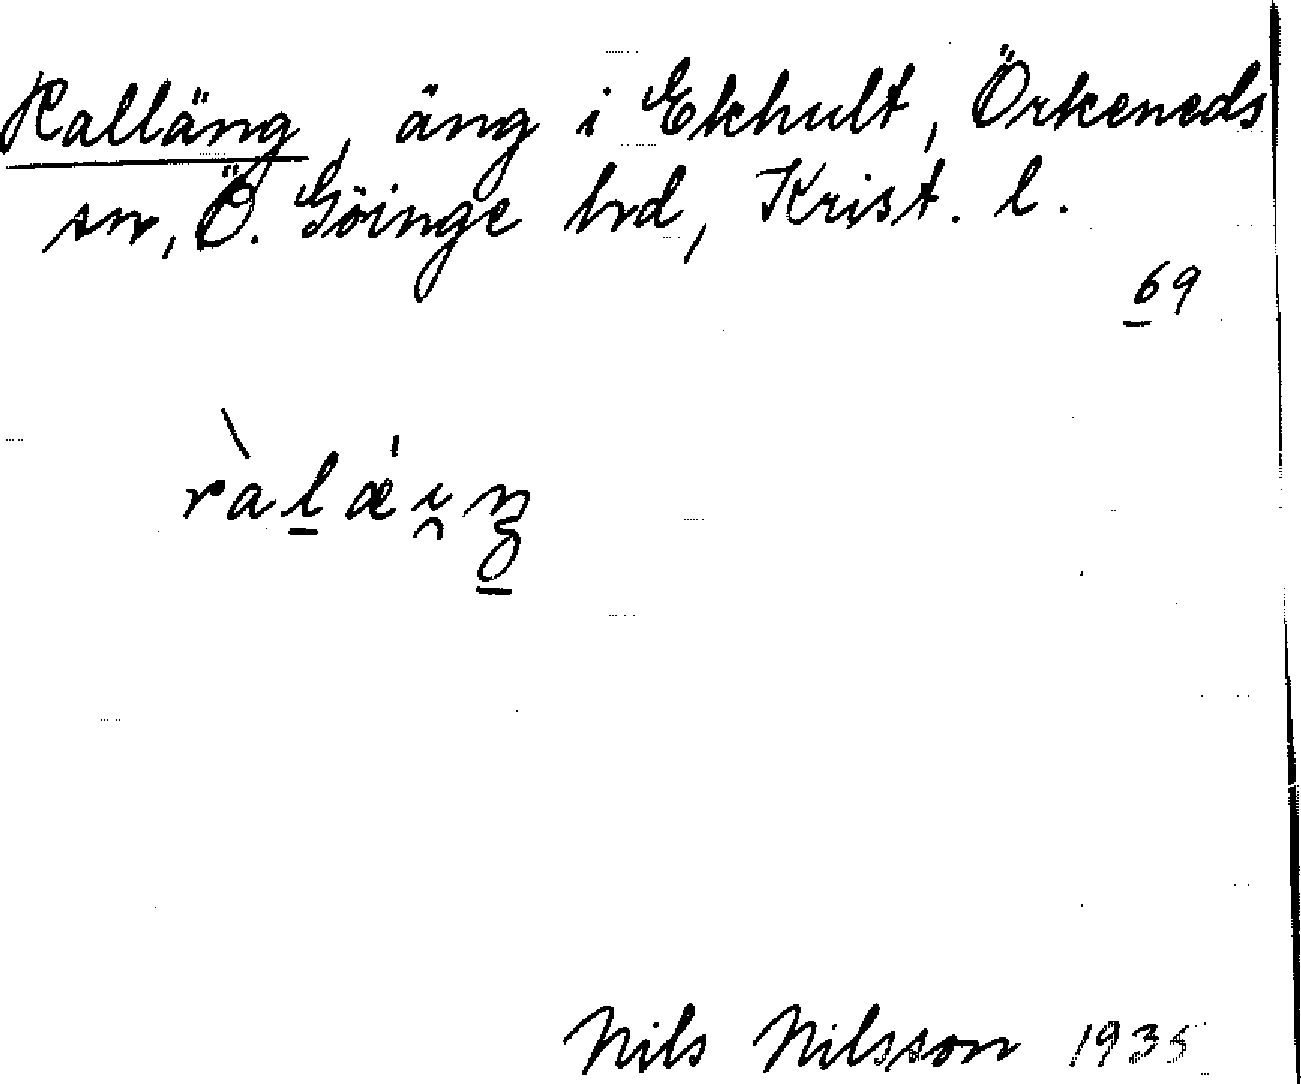 Ralläng, äng i Ekhult, Örkeneds
sn, Ö. Göinge hrd, Krist. l.
69
ràlǽi̯ŋ
Nils Nilsson 1935